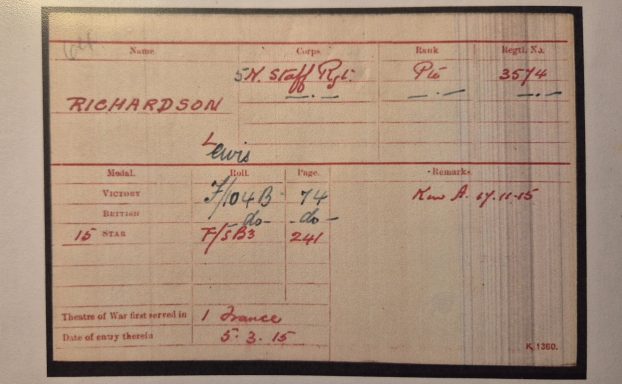 Name. Corps. Rank Regtl. No.
5 N. Staff Rgt. Pte 3574
RICHARDSON
Lewis
Medal. Roll. Page. Remarks.
VICTORY F/104B 74
BRITISH -do- -do-
15 STAR F/5B3 241
A. 17.11.15
Theatre of War first served in 1 France
Date of entry therein 5.3.15
K. 1360.